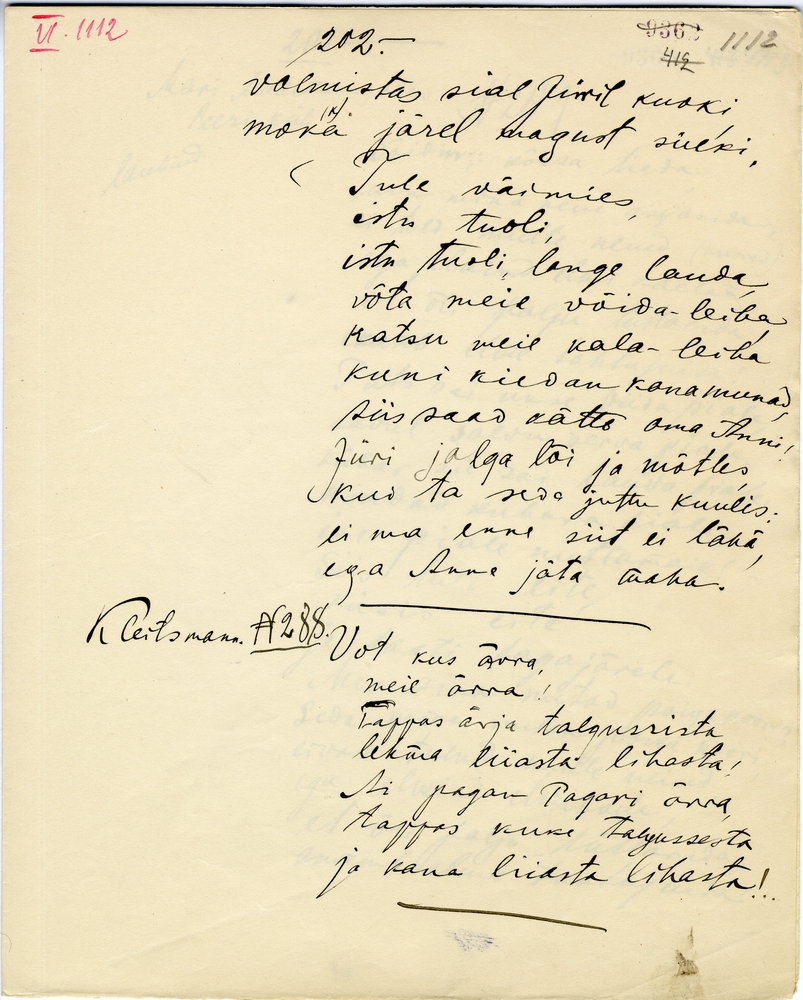 VI. 1112
202.-
9362
412
1112
valmistas sial Jüril kuoki,
moka (k) järel magust süeki.
Tule väimies,
istu tuoli,
istu tuoli, lange lauda,
võta meie võida-leiba,
katsu meie kala-leiba
kuni kiedan kanamunad,
siis saad kätte oma Anni!
Jüri jalga lõi ja mõtles,
kui ta seda juttu kuulis:
ei ma enne siit ei lähä,
ega Anne jäta maha.
K Leitsmann. N 288.
Vot kus ärra,
meie ärra!
Tappas ärja talgussista
lehma liiasta lihasta!
Ai pagan Pagari ärra,
tappas kuke talgussesta
ja kana liiasta lihasta!..